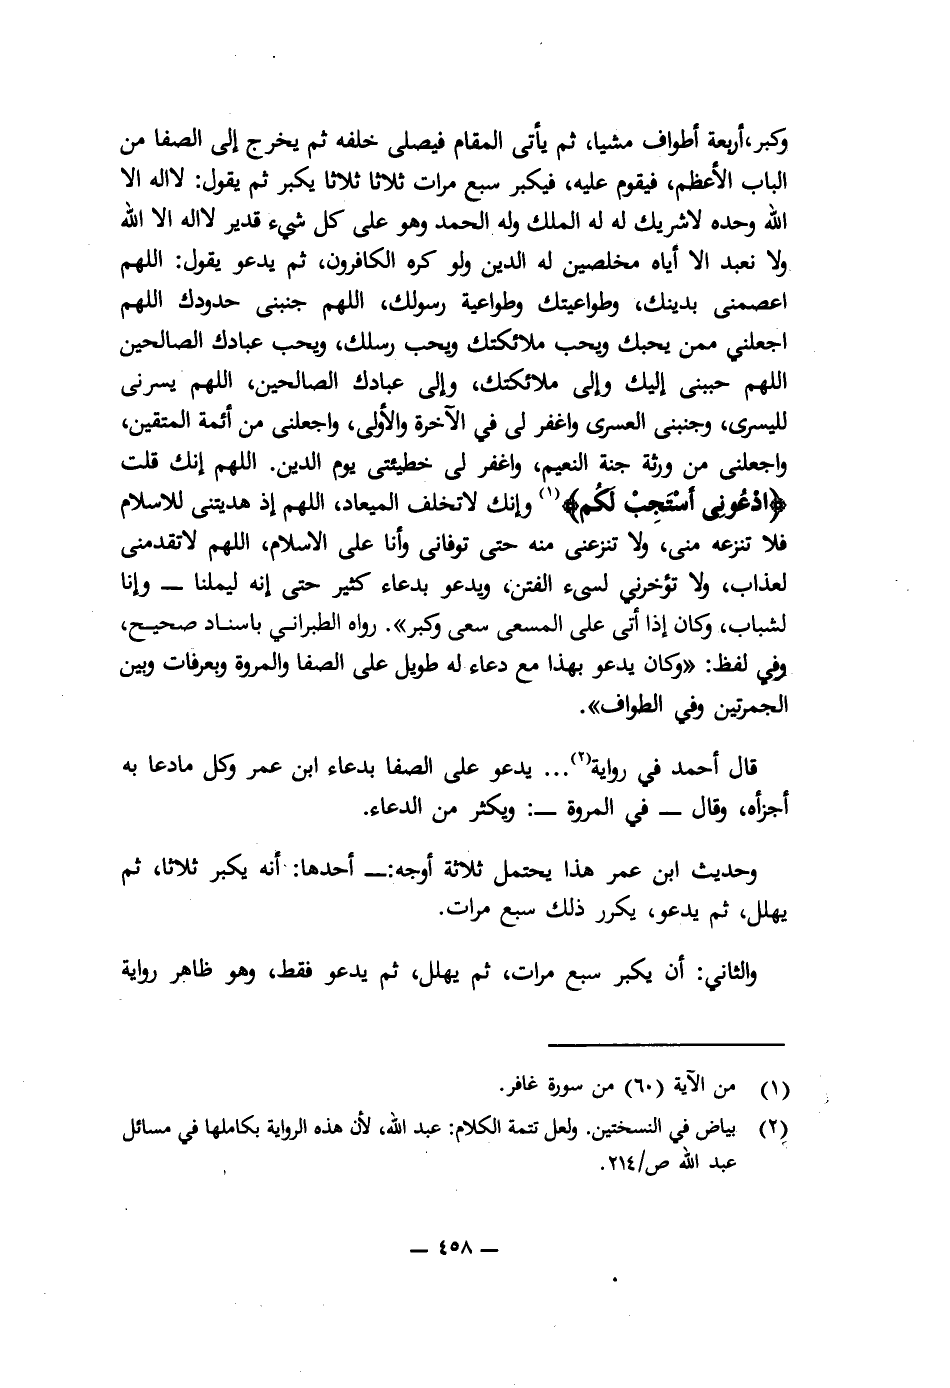 وكبر،أربعة أطواف مشيا، ثم يأتى المقام فيصلى خلفه ثم يخرج إلى الصفا من
الباب الأعظم، فيقوم عليه، فيكبر سبع مرات ثلاثا ثلاثا يكبر ثم يقول: لااله الا
الله وحده لاشريك له له الملك وله الحمد وهو على كل شيء قدير لااله الا الله
ولا نعبد الا أياه مخلصين له الدين ولو كره الكافرون، ثم يدعو يقول: اللهم
اعصمنى بدينك، وطواعيتك وطواعية رسولك، اللهم جنبنى حدودك اللهم
اجعلني ممن يحبك ويحب ملائكتك ويحب رسلك، ويحب عبادك الصالحين
اللهم حببنى إليك وإلى ملائكتك، وإلى عبادك الصالحين، اللهم يسرنى
لليسرى، وجنبنى العسرى واغفر لى في الآخرة والأولى، واجعلنى من أئمة المتقين،
واجعلنى من ورثة جنة النعيم، واغفر لى خطيئتى يوم الدين. اللهم إنك قلت
﴿ادْعُونِى أَسْتَجِبْ لَكُم﴾(١) وإنك لاتخلف الميعاد، اللهم إذ هديتنى للاسلام
فلا تنزعه منى، ولا تنزعنى منه حتى توفانى وأنا على الاسلام، اللهم لاتقدمنى
لعذاب، ولا تؤخرني لسىء الفتن، ويدعو بدعاء كثير حتى إنه ليملنا — وإنا
لشباب، وكان إذا أتى على المسعى سعى وكبر». رواه الطبراني باسناد صحيح،
وفي لفظ: «وكان يدعو بهذا مع دعاء له طويل على الصفا والمروة وبعرفات وبين
الجمرتين وفي الطواف».
قال أحمد في رواية(٢)... يدعو على الصفا بدعاء ابن عمر وكل مادعا به
أجزأه، وقال — في المروة —: ويكثر من الدعاء.
وحديث ابن عمر هذا يحتمل ثلاثة أوجه:— أحدها: أنه يكبر ثلاثا، ثم
يهلل، ثم يدعو، يكرر ذلك سبع مرات.
والثاني: أن يكبر سبع مرات، ثم يهلل، ثم يدعو فقط، وهو ظاهر رواية
(١) من الآية (٦٠) من سورة غافر.
(٢) بياض في النسختين. ولعل تتمة الكلام: عبد الله، لأن هذه الرواية بكاملها في مسائل
عبد الله ص/٢١٤.
— ٤٥٨ —